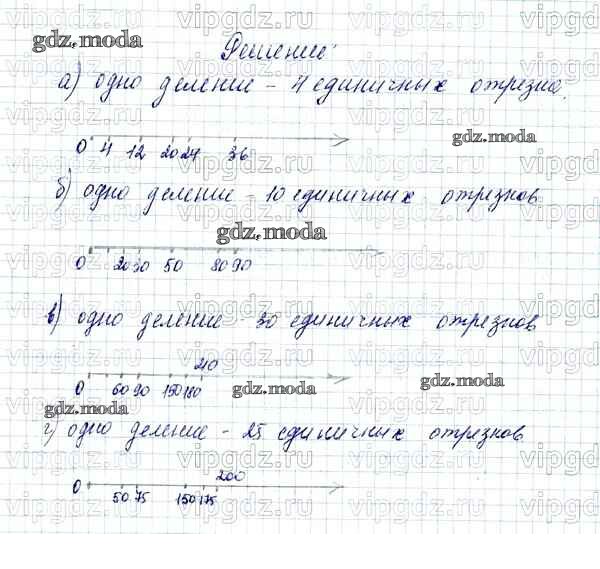 vipgdz.ru vipgdz.ru vipgdz.ru vipgdz.ru
gdz.moda
Решение:
а) одно деление - 4 единичных отрезка.
gdz.moda
0 4 12 20 24 36
б) одно деление - 10 единичных отрезков
gdz.moda
0 20 30 50 80 90
в) одно деление - 30 единичных отрезков
210
0 60 90 150 180
gdz.moda gdz.moda gdz.moda
г) одно деление - 25 единичных отрезков
200
0 50 75 150 175
vipgdz.ru vipgdz.ru vipgdz.ru vipgdz.ru